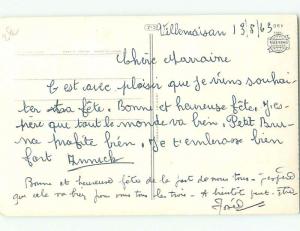 Villemoisan 13/8/63
Chère Marraine
C'est avec plaisir que je viens souhai-
ter ta fête. Bonne et heureuse fête. J'es-
père que tout le monde va bien. Petit Bru-
no profite bien. Je t'embrasse bien
fort Annick
Bonne et heureuse fête de la part de nous tous - j'espère
que cela va bien pour vous tous les trois - A bientôt peut-être